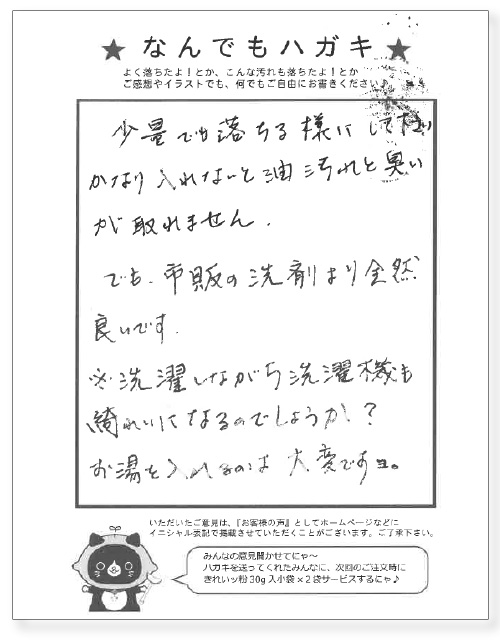 ★なんでもハガキ★
よく落ちたよ！とか、こんな汚れも落ちたよ！とか
ご感想やイラストでも、何でもご自由にお書きください♪
少量でも落ちる様にして
かなり入れないと油汚れと臭い
が取れません.
でも.市販の洗剤より全然
良いです.
※洗濯しながら洗濯機も
綺れいになるのでしょうか?
お湯を入れるのは大変ですョ。
いただいたご意見は、『お客様の声』としてホームページなどに
イニシャル表記で掲載させていただくことがございます。ご了承下さい。
みんなの意見聞かせてにゃ～
ハガキを送ってくれたみんなに、次回のご注文時に
きれいッ粉30g入小袋×2袋サービスするにゃ♪